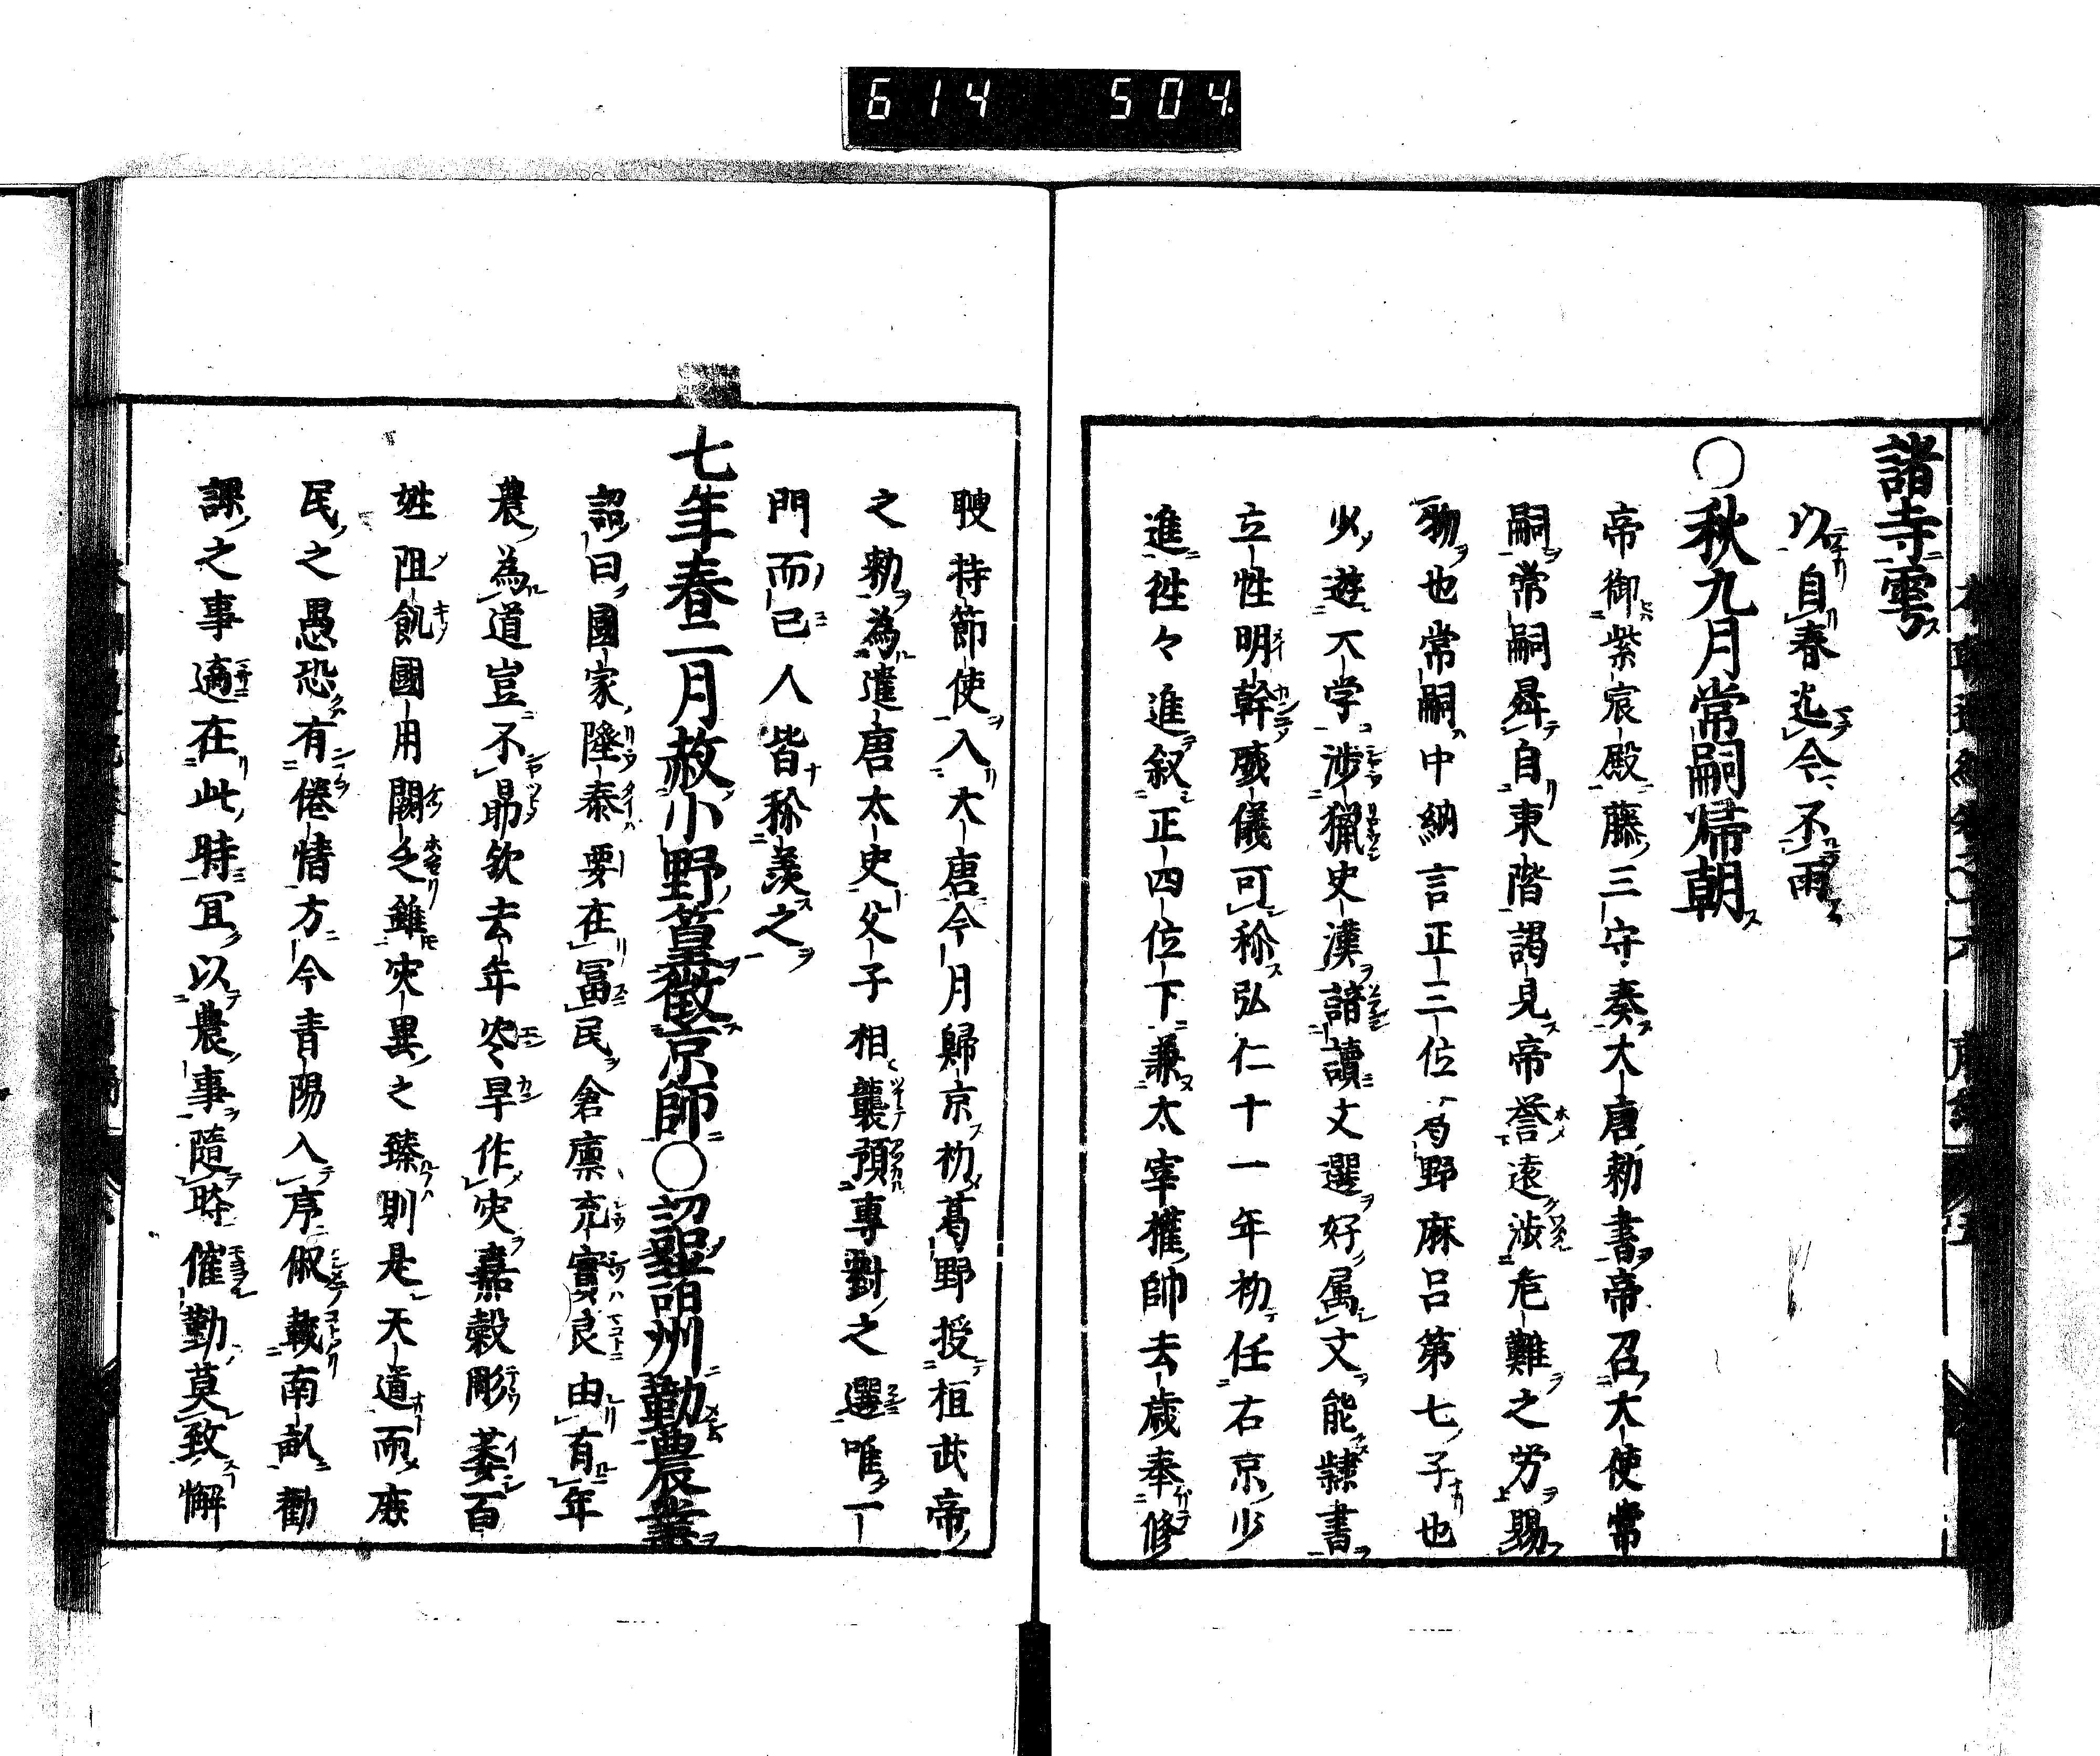 614 504
諸寺雩
以自春迄今不雨
○秋九月常嗣帰朝
帝御紫宸殿藤三守奏大唐勅書帝召大使常
嗣常嗣昇自東階謁見帝誉遠渉危難之労賜
物也常嗣中納言正三位葛野麻呂第七子也
少遊大学渉猟史漢諳讀文選好属文能隷書
立性明幹威儀可称弘仁十一年初任右京少
進徃々進叙正四位下兼太宰權帥去歳奉修
聘持節使入大唐今月歸京初葛野授桓武帝
之勅為遣唐太史父子相襲預專對之選唯一
門而已人皆称羨之
七年春二月赦小野篁徴京師○詔諸州勤農業
詔曰國家隆泰要在冨民倉廩充實良由有年
農為道豈不勗欤去年炎旱作灾嘉穀彫萎百
姓阻飢國用闕乏雖灾異之臻則是天道而庶
民之愚恐有倦惰方今青陽入序俶載南畝勸
課之事適在此時冝以農事隨時催勤莫致懈